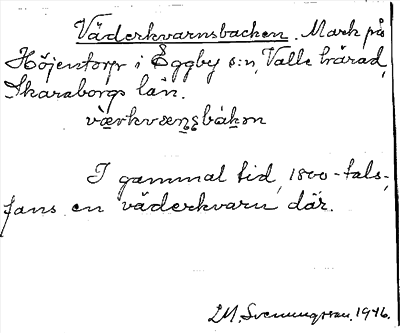 Väderkvarnsbacken. Mark på
Höjentorp i Eggby s:n, Valle härad,
Skaraborgs län.
I gammal tid, 1800-tals-,
fans en väderkvarn där.
LM. Svenungsson. 1946.